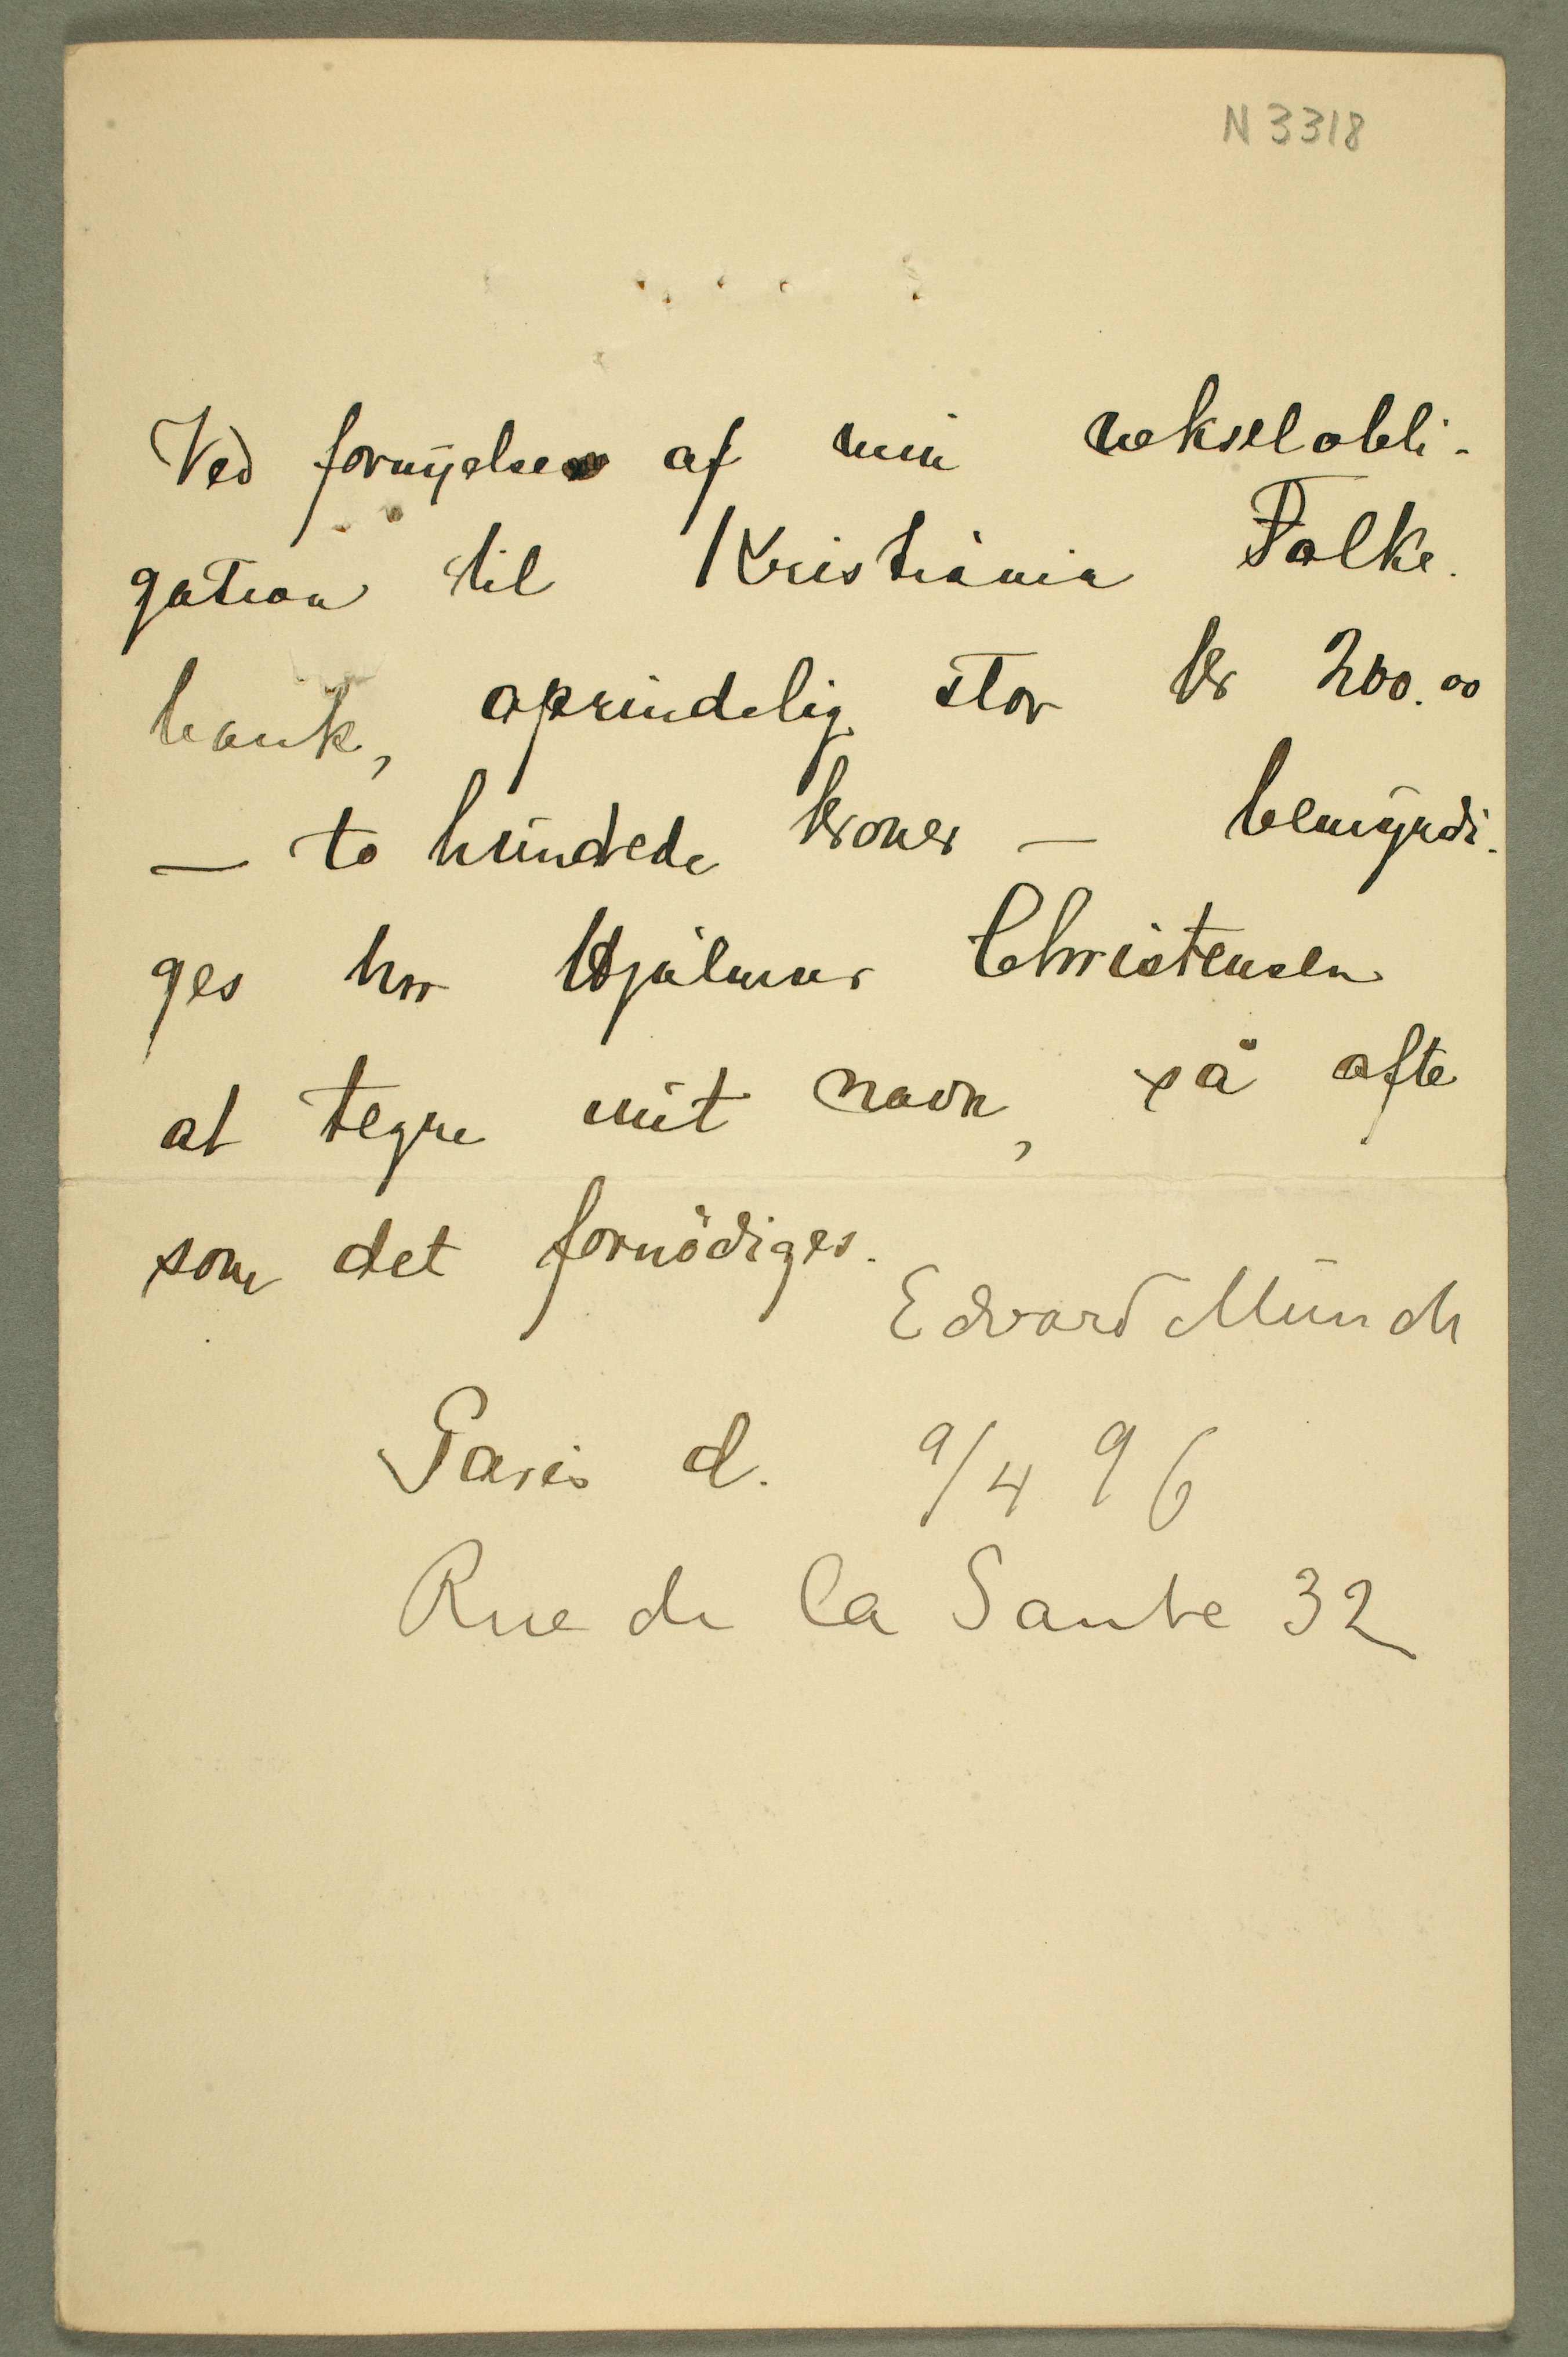 N 3318
Ved fornyelse af min vekselobli-
gation til Kristiania Folke-
bank, oprindelig stor kr 200.00
— to hundrede kroner — bemyndi-
ges hrr Hjalmar Christensen
at tegne mit navn, så ofte
som det fornödiges.
Edvard Munch
Paris d. 9/4 96
Rue de la Sante 32